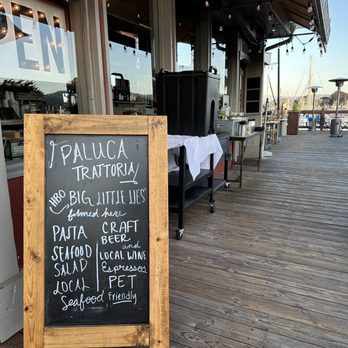 DEN
PALUCA
TRATTORIA
HBO BIG LITTLE LIES'
filmed here
PASTA
SEAFOOD
SALAD
LOCAL
Seafood
CRAFT
BEER
and
LOCAL WINE
Espressos
PET
Friendly